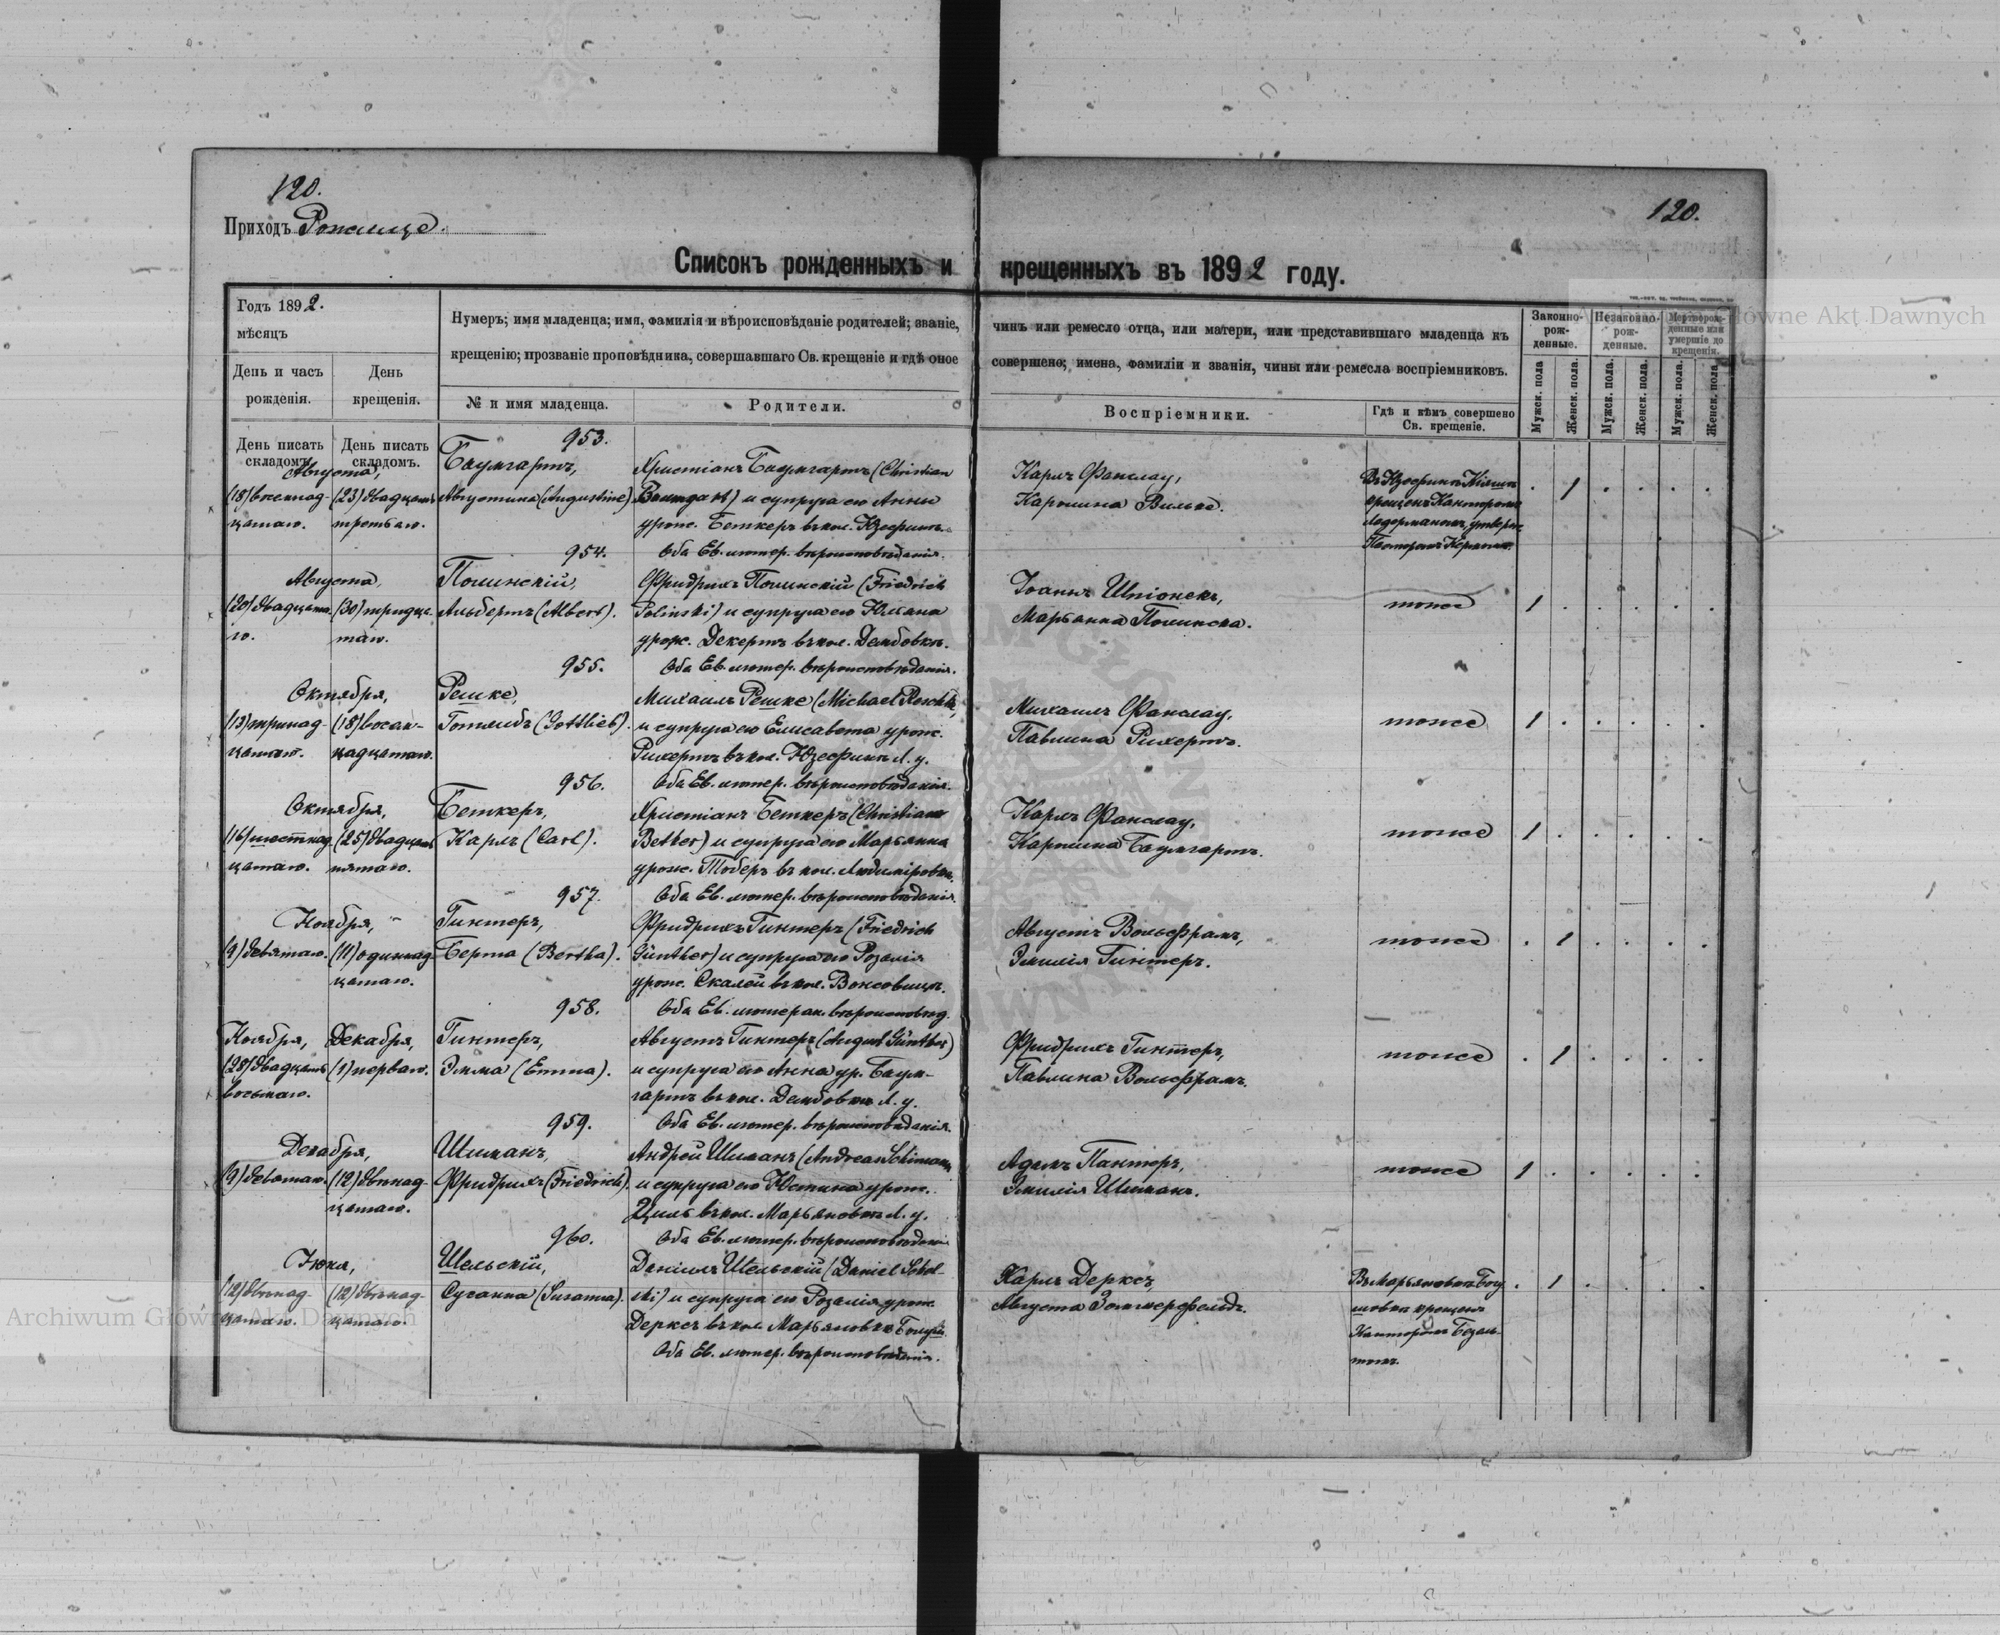 120.
Приходъ Рожище.
120.
Списокъ рожденныхъ и крещенныхъ въ 1892 году.
Годъ 1892.
мѣсяцъ
День и часъ рожденія.
День крещенія.
Нумеръ; имя младенца; имя, фамилія и вѣроисповѣданіе родителей; званіе, чинъ или ремесло отца, или матери, или представившаго младенца къ
крещенію; прозваніе проповѣдника, совершавшаго Св. крещеніе и гдѣ оное совершено; имена, фамиліи и званія, чины или ремесла воспріемниковъ.
№ и имя младенца.
Родители.
Воспріемники.
Гдѣ и кѣмъ совершено Св. крещеніе.
Законно-рож-денные.
Незаконно-рож-денные.
Мертворож-денные или умершіе до крещенія.
Мужск. пола
Женск. пола.
Мужск. пола.
Женск. пола.
Мужск. пола.
Женск. пола.
День писать складомъ.
День писать складомъ.
953.
Августа,
(18) восемнад-
цатаго.
(23) двадцать
третьяго.
Баумгартъ,
Августина (Augustine)
Христіанъ Баумгартъ (Christian
Baumgart) и супруга его Анны
урож. Беткеръ въ кол. Юзефинъ.
Оба Ев. лютер. вѣроисповѣданія.
Карлъ Фанслау,
Каролина Вильке.
Въ Юзефинѣ
крещенъ Канторомъ
. 1 . . . .
954.
Августа,
(20) двадцата-
го.
(30) тридца-
таго.
Полинскій,
Альбертъ (Albert).
Фридрихъ Полинскій (Friedrich
Polinski) и супруга его Юліана
урож. Декертъ въ кол. Дембовкѣ.
Оба Ев. лютер. вѣроисповѣданія.
Іоаннъ Шпіонекъ,
Марьанна Полинска.
тоже
1 . . . . .
955.
Октября,
(13) тринад-
цатаго.
(18) восем-
надцатаго.
Решке,
Готлибъ (Gottlieb).
Михаилъ Решке (Michael Reschke)
и супруга его Елисавета урож.
Рихертъ въ кол. Юзефинъ Л. у.
Оба Ев. лютер. вѣроисповѣданія.
Михаилъ Фанслау,
Павлина Рихертъ.
тоже
1 . . . . .
956.
Октября,
(16) шестнад-
цатаго.
(25) двадцать
пятаго.
Беткеръ,
Карлъ (Carl).
Христіанъ Беткеръ (Christian
Betker) и супруга его Марьанна
урож. Тоберъ въ кол. Людмировкѣ.
Оба Ев. лютер. вѣроисповѣданія.
Карлъ Фанслау,
Каролина Баумгартъ.
тоже
1 . . . . .
957.
Ноября,
(9) девятаго.
(11) одиннад-
цатаго.
Гинтеръ,
Берта (Bertha).
Фридрихъ Гинтеръ (Friedrich
Günther) и супруга его Розалія
урож. Скалей въ кол.
Оба Ев. лютеран. вѣроисповѣд.
Августъ Вольфрамъ,
Эмилія Гинтеръ.
тоже
. 1 . . . .
958.
Ноября,
(28) двадцать
восьмаго.
Декабря,
(1) перваго.
Гинтеръ,
Эмма (Emma).
Августъ Гинтеръ (August Günther)
и супруга его Анна ур. Баум-
гартъ въ кол. Дембовкѣ Л. у.
Оба Ев. лютер. вѣроисповѣданія.
Фридрихъ Гинтеръ,
Павлина Вольфрамъ.
тоже
. 1 . . . .
959.
Декабря,
(9) девятаго.
(12) двѣнад-
цатаго.
Шиманъ,
Фридрихъ (Friedrich).
Андрей Шиманъ (Andreas Schimann)
и супруга его Юстина урож.
Циль въ кол. Марьяновкѣ Л. у.
Оба Ев. лютер. вѣроисповѣданія
Адамъ Пантеръ,
Эмилія Шиманъ.
тоже
1 . . . . .
960.
Іюня,
(12) двѣнад-
цатаго.
(12) двѣнад-
цатаго.
Шельскій,
Сусанна (Susanna).
Даніилъ Шельскій (Daniel Schel-
ski) и супруга его Розалія урож.
Дерксъ въ кол. Марьяновкѣ
Оба Ев. лютер. вѣроисповѣданія.
Карлъ Дерксъ,
Августа Зоммерфельдъ.
Въ Марьяновкѣ
крещена
Канторомъ
. 1 . . . .
Archiwum Główne Akt Dawnych
Archiwum Główne Akt Dawnych